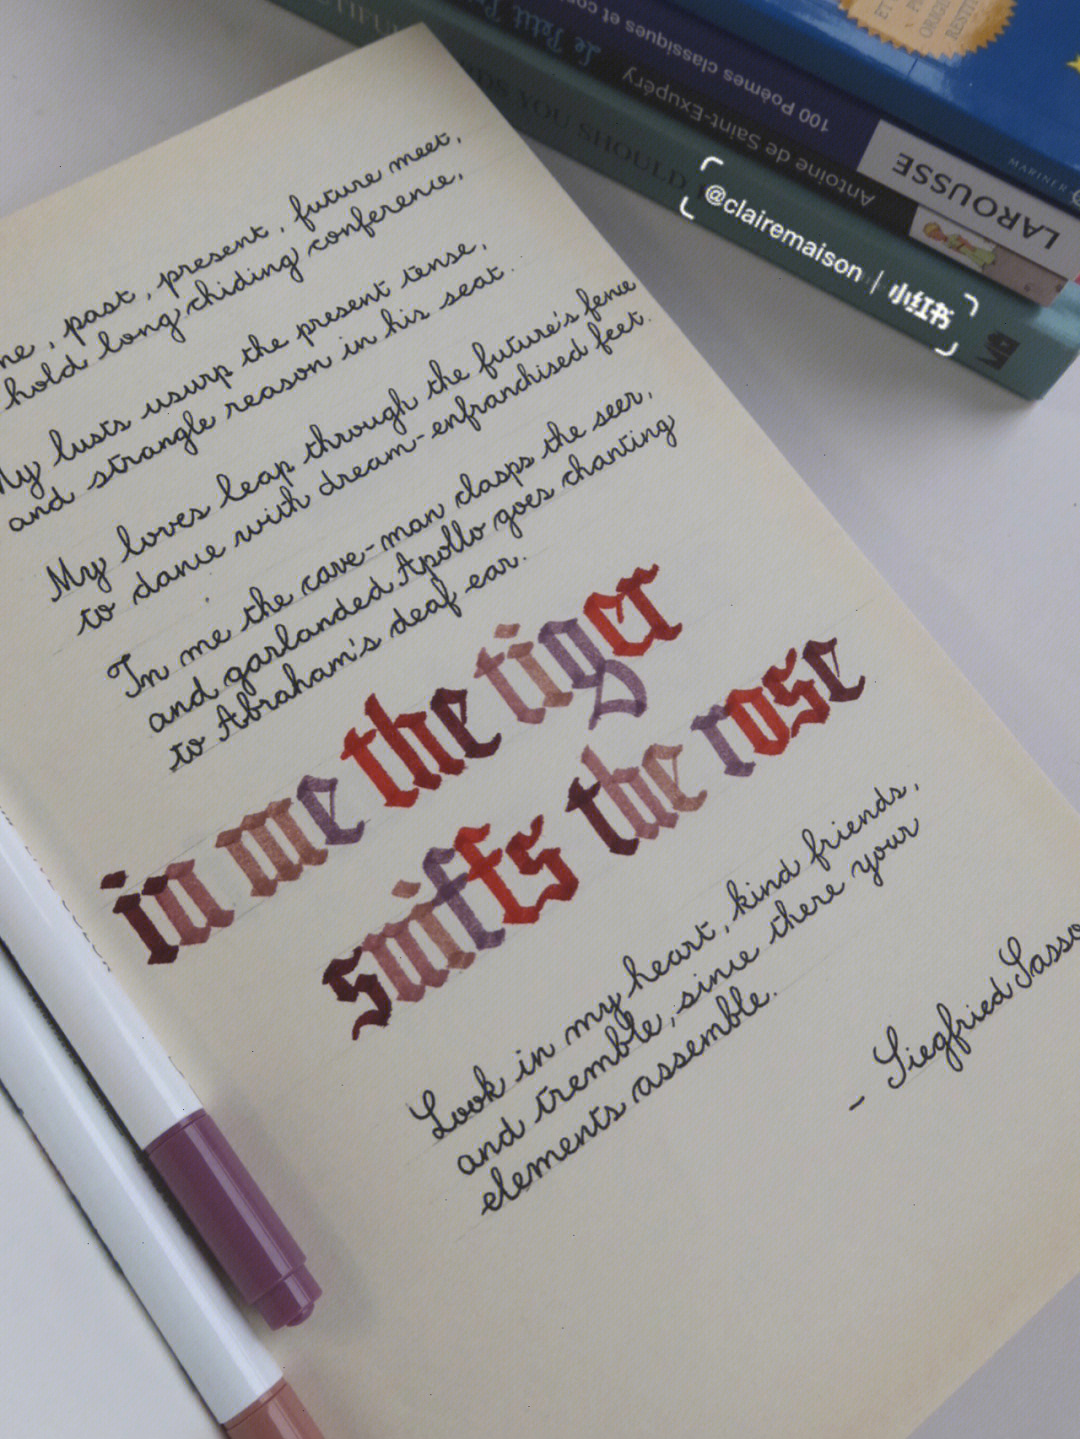 past, present, future meet,
hold long chiding conference,
My lusts usurp the present tense,
and strangle reason in his seat.
My loves leap through the future's fence
to dance with dream-enfranchised feet.
In me the cave-man clasps the seer,
and garlanded Apollo goes chanting
to Abraham's deaf ear.
in me the tiger
sniffs the rose
Look in my heart, kind friends,
and tremble, since there your
elements assemble.
- Siegfried Sasso
@clairemaison | 小红书
ET
ORIGI
RESTIT
MARINER
LAROUSSE
100 Poèmes classiques et con
Le Petit Pr
Antoine de Saint-Exupéry
DS YOU SHOULD